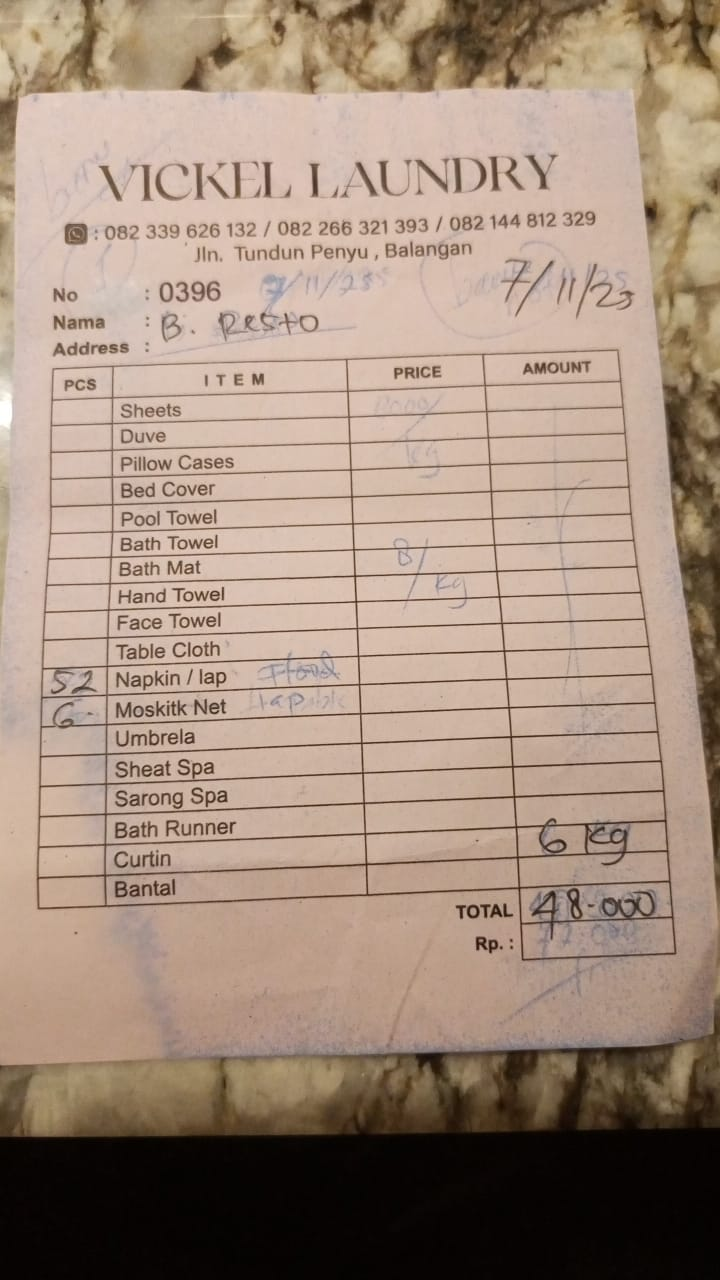 VICKEL LAUNDRY
: 082 339 626 132 / 082 266 321 393 / 082 144 812 329
Jln. Tundun Penyu , Balangan
7/11/25
No : 0396
Nama : B. Resto
Address :
PCS ITEM PRICE AMOUNT
Sheets
Duve
Pillow Cases
kg
Bed Cover
Pool Towel
Bath Towel
Bath Mat 8/
Hand Towel kg
Face Towel
Table Cloth
52 Napkin / lap
6 Moskitk Net
Umbrela
Sheat Spa
Sarong Spa
Bath Runner
6 kg
Curtin
Bantal
TOTAL 48.000
Rp. :